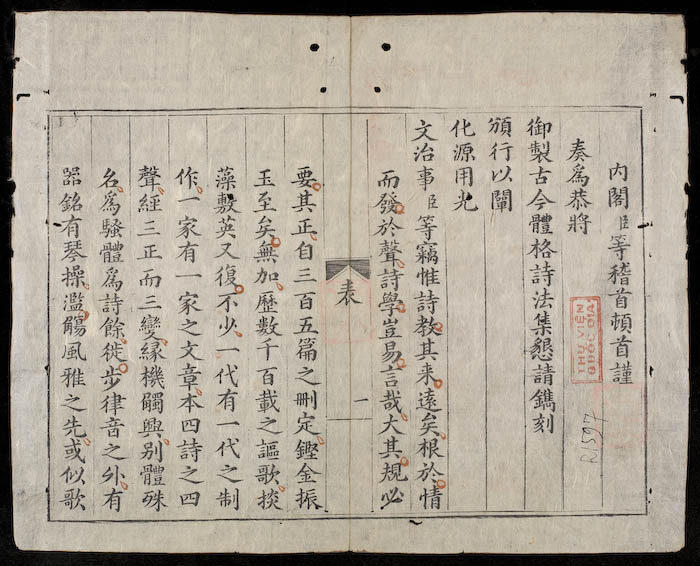 內閣臣等稽首頓首謹
奏為恭將
御製古今體格詩法集懇請鐫刻
頒行以闡
化源用光
文治事臣等竊惟詩教其来遠矣根於情
而發於聲詩學豈易言哉大其規必
表
一
要其正自三百五篇之刪定鏗金振
玉至矣無加歷數千百載之謳歌掞
藻敷英又復不少一代有一代之制
作一家有一家之文章本四詩之四
聲經三正而三變緣機觸興別體殊
名為騷體為詩餘徙步律音之外有
器銘有琴操濫觴風雅之先或似歌
THƯ VIỆN
QUỐC GIA
R1597